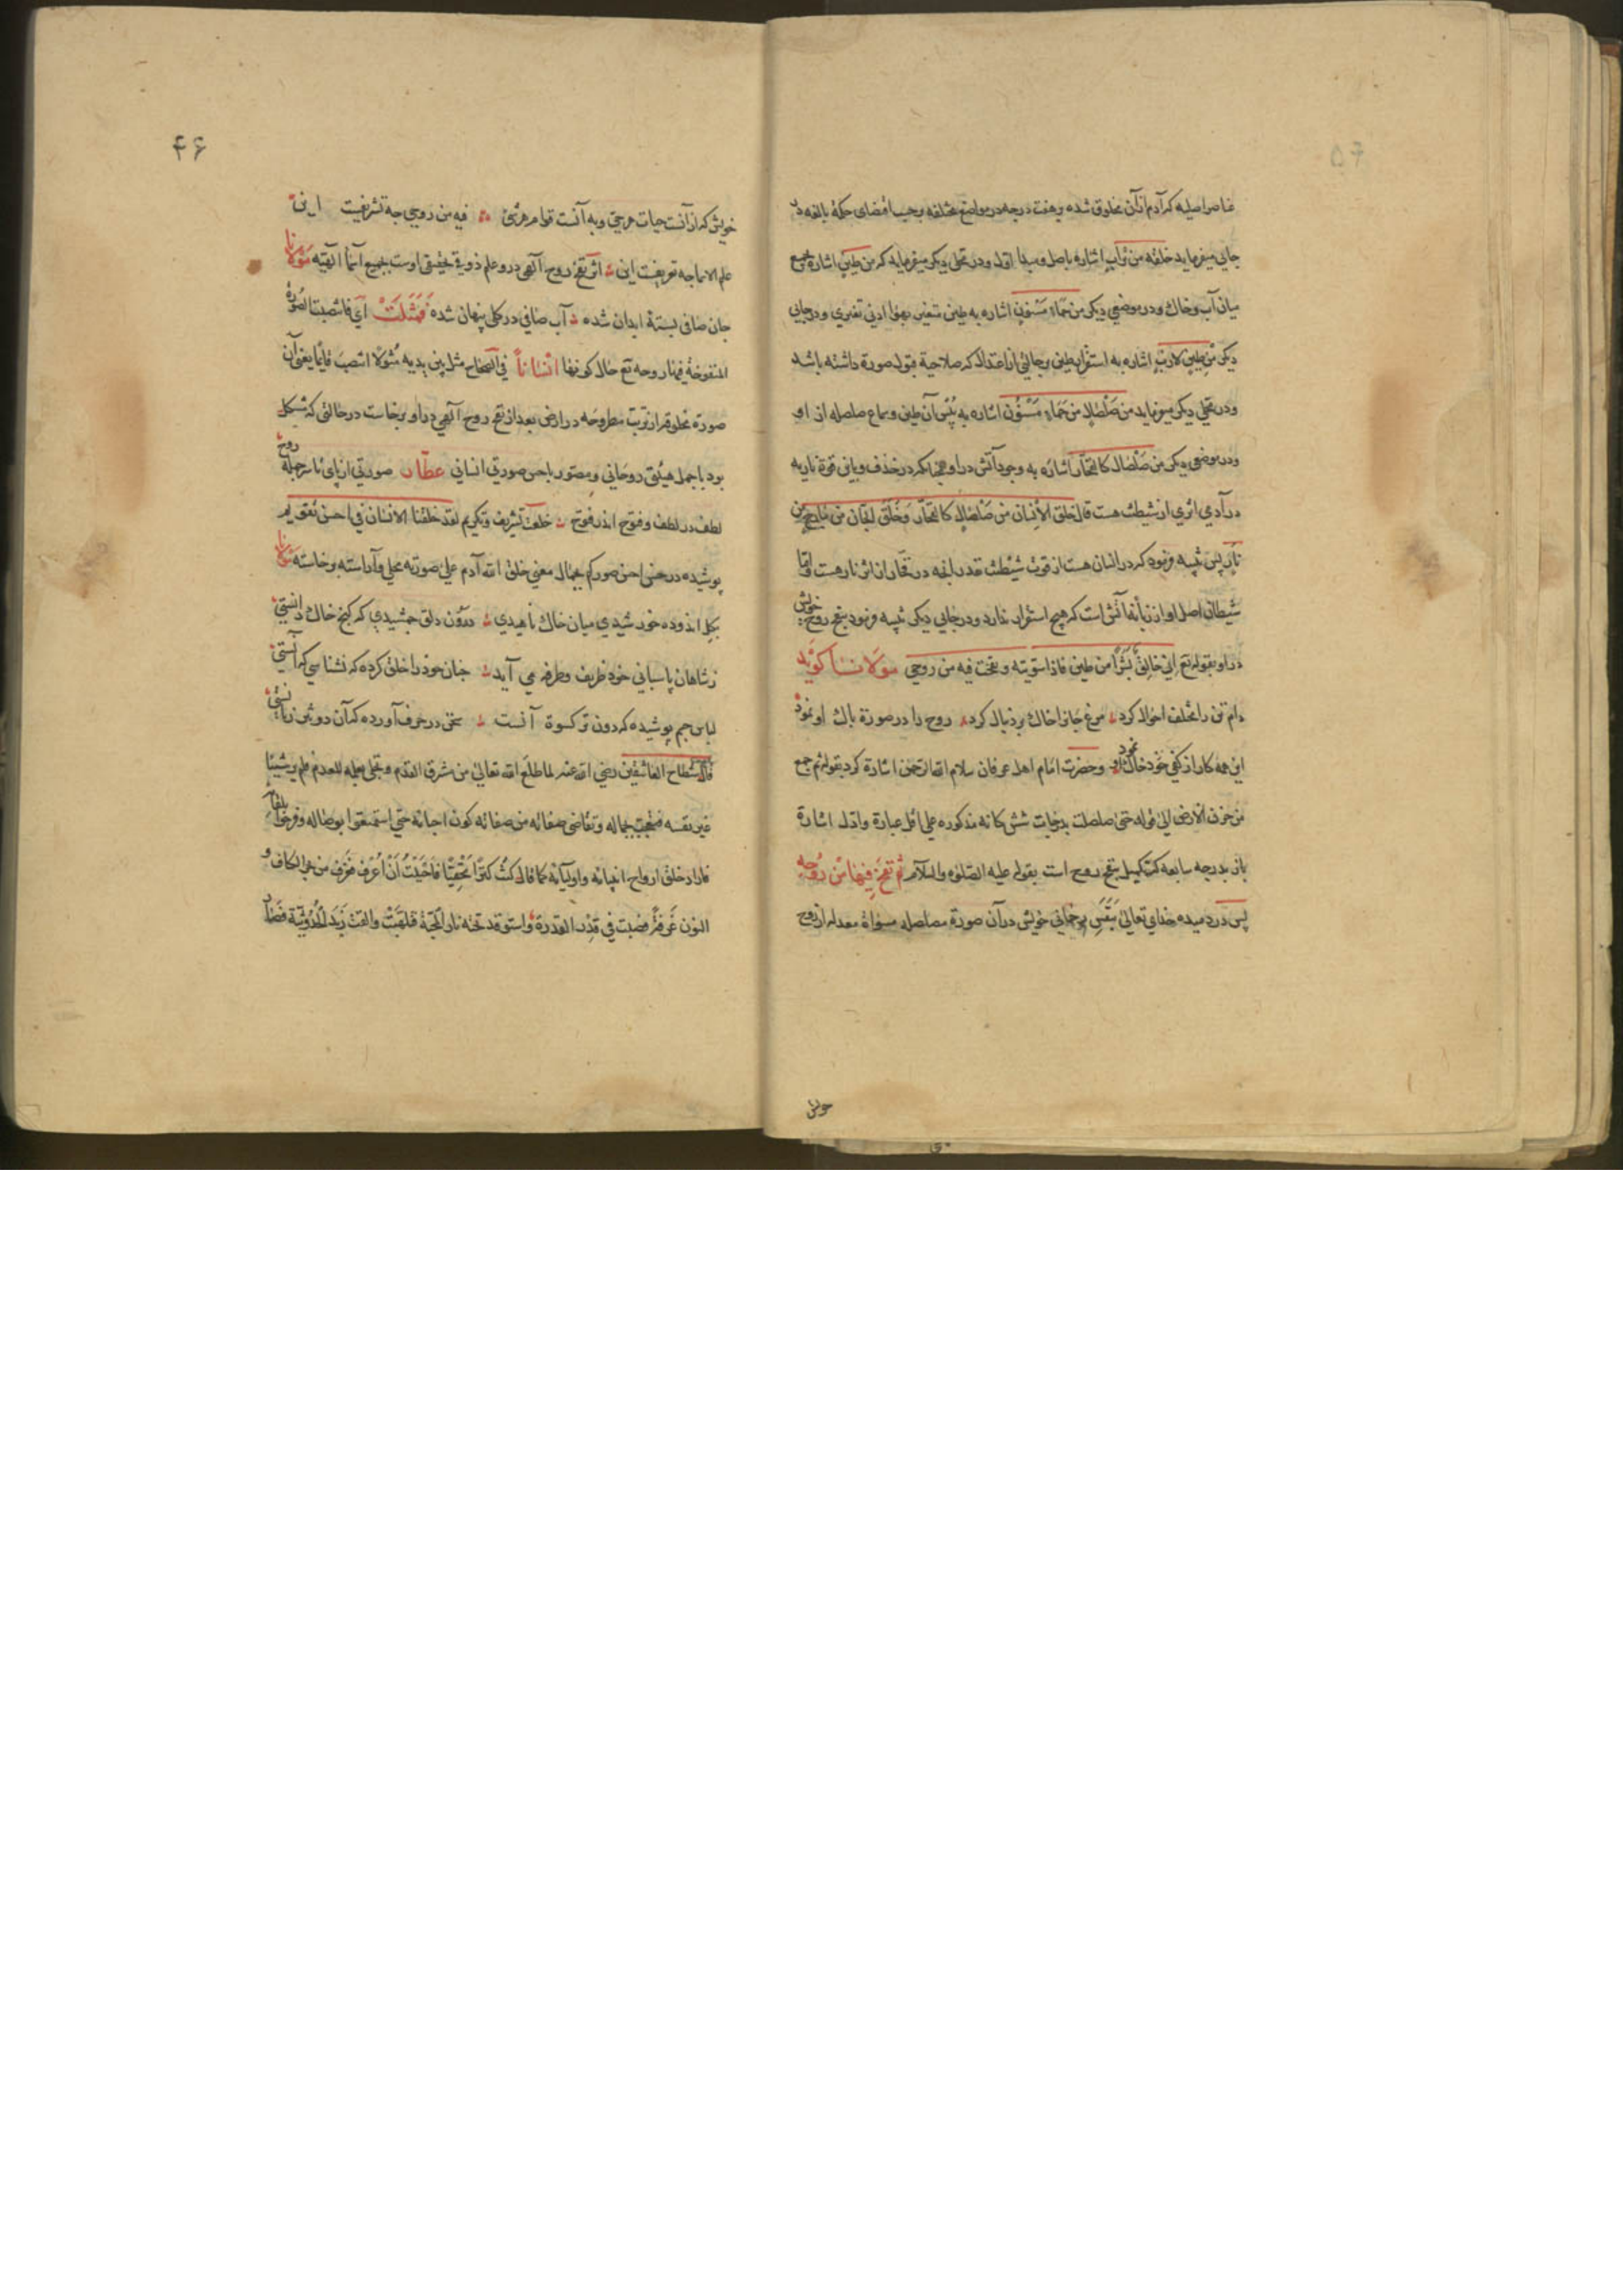 ۵۴
عناصر اصلیه که آدم از آن مخلوق شده و هفت درجه در مواضع مختلفه بر حسب اقتضای حکمة بالغه در
جایی میفرماید خلقه من تراب اشاره باصل و مبدا اول و در محلی دیگر میفرماید که من طین اشاره بجمع
میان آب و خاک و در موضعی دیگر من حماء مسنون اشاره به طین متغیر بهوا ادنی تغیری و در جایی
دیگر من طین لازب اشاره به استقرار طین بر حالتی از اعتدال که صلاحیة قبول صورة داشته باشد
و در محلی دیگر میفرماید من صلصال من حماء مسنون اشاره به یبس آن طین و سماع صلصله از او
و در موضعی دیگر من صلصال کالفخار اشاره به وجود آتش در او همچنانکه در خذف و باین قوة ناریه
در آدمی اثری از شیطنت هست قال خلق الانسان من صلصال کالفخار و خلق الجان من مارج من
نار پس تنبیه فرمود که در انسان هست از قوت شیطنت بقدر آنچه در فخار از اثر نار هست و اما
شیطان اصل او از زبانه آتش است که هیچ استقرار ندارد و در جایی دیگر تنبیه فرمود بنفخ روح خویش
در او بقوله تع انی خالق بشرا من طین فاذا سویته و نفخت فیه من روحی مولانا گوید
دام تن را مختلف احوال کرد مرغ جانرا خاک بر دنبال کرد روح را در صورة پاک او نمود
این همه کار از کفی خود خاک نمود و حضرت امام اهل عرفان سلام الله الرحمن اشارة کرد بقوله ثم جمع
من حزن الارض الی قوله حتی صلصلت بدرجات شش کانه مذکوره علی اقل عبارة و ادل اشارة
باز بدرجه سابعه که تکمیل بنفخ روح است بقوله علیه الصلوة والسلام ثم نفخ فیها من روحه
پس در دمیده خدای تعالی بنفس رحمانی خویش در آن صورة مصلصله مسواة معدله از روح
خویش
۴۶
خویش که از آنست حیات هر حی و به آنست قوام هر شئ فیه من روحی چه تشریفست این
علم الاسما چه تعریفست این اثر نفخ روح آلهی در و علم ذوقی حقیقی اوست بجمیع اسما آلهیه مولانا
جان صافی بسته ابدان شده آب صافی در گل پنهان شده فمثلت ای فانتصبت الصورة
المنفوخة فیها روحه تع حال کونها انسانا فی الصحاح مثل بین یدیه مثولا انتصب قایما یعنی آن
صورة مخلوقه از تربت مطروحه در ارض بعد از نفخ روح آلهی در او برخاست در حالتی که متشکل
بود باجمل هیئتی روحانی و مصور باحسن صورتی انسانی عطار صورتی از پای تا سر جمله روح
لطف در لطف و فتوح اندر فتوح خلعت تشریف و تکریم لقد خلقنا الانسان فی احسن تقویم
پوشیده در حسن احسن صورکم بجمال معنی خلق الله آدم علی صورته محلی و آراسته برخاسته مولانا
بگل اندوده خورشیدی میان خاک ناهیدی درون دلق جمشیدی که گنج خاک دانستی
ز شاهان پاسبانی خود ظریف و طرفه می آید چنان خود را خلق کرده که نشناسی که آنستی
لباس جسم پوشیده که دون تر کسوة آنست سخن در حرف آورده که آن دون تر زبانستی
قال شطاح العاشقین رضی الله عنه لما طلع الله تعالی من مشرق القدم و تجلی بجماله للعدم فلم یر شیئا
غیر نفسه فعجب بجماله و تقاضی صفاته من صفاته کون احبائه حتی استمتعوا بوصاله و فرحوا بلقائه
فاراد خلق ارواح انبیائه و اولیائه کما قال کنت کنزا مخفیا فاحببت ان اعرف فغرف من بحر الکاف و
النون غرفة فصبت فی قدر القدرة و استوقد تحته نار المحبة فلهبت والقت زبد الحدوثیة فصار